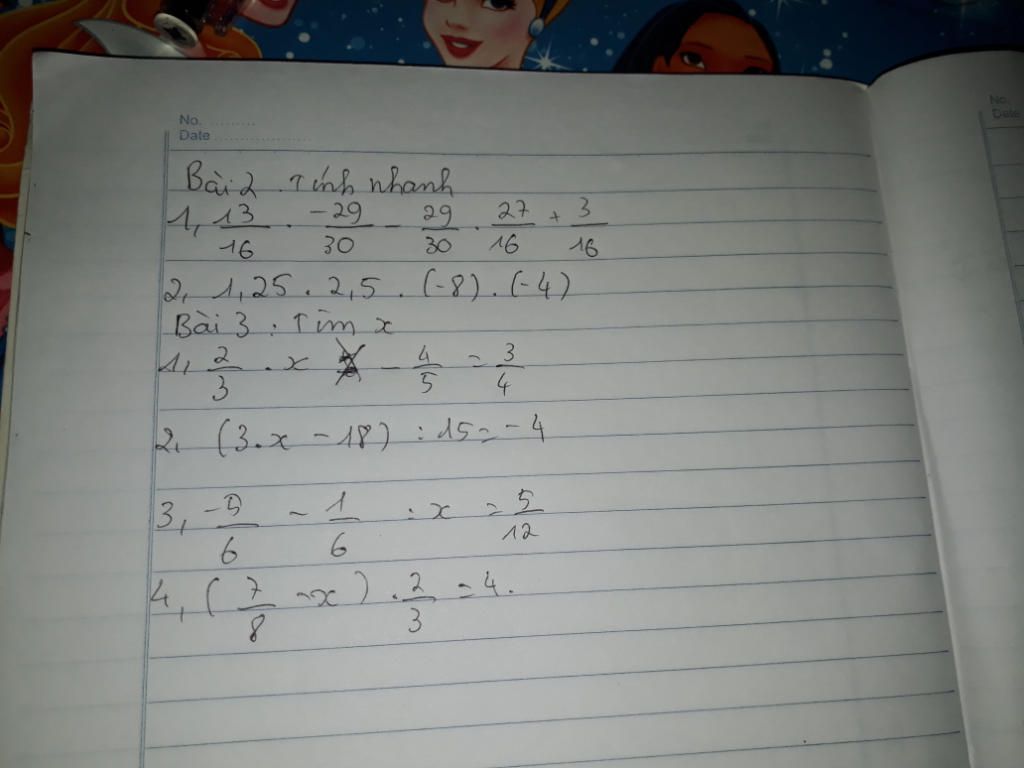 No. .........
Date ..................
No.
Date
Bài 2 . Tính nhanh
1, 13/16 . -29/30 - 29/30 . 27/16 + 3/16
2, 1,25 . 2,5 . (-8) . (-4)
Bài 3 : Tìm x
1, 2/3 . x - 4/5 = 3/4
2, (3.x - 18) : 15 = -4
3, -5/6 - 1/6 : x = 5/12
4, (7/8 - x) . 2/3 = 4.